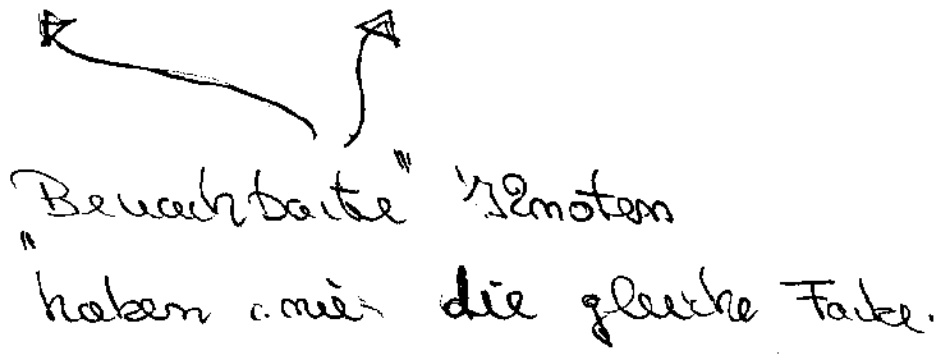 Benachbarte" Knoten
"haben nie die gleiche Farbe.